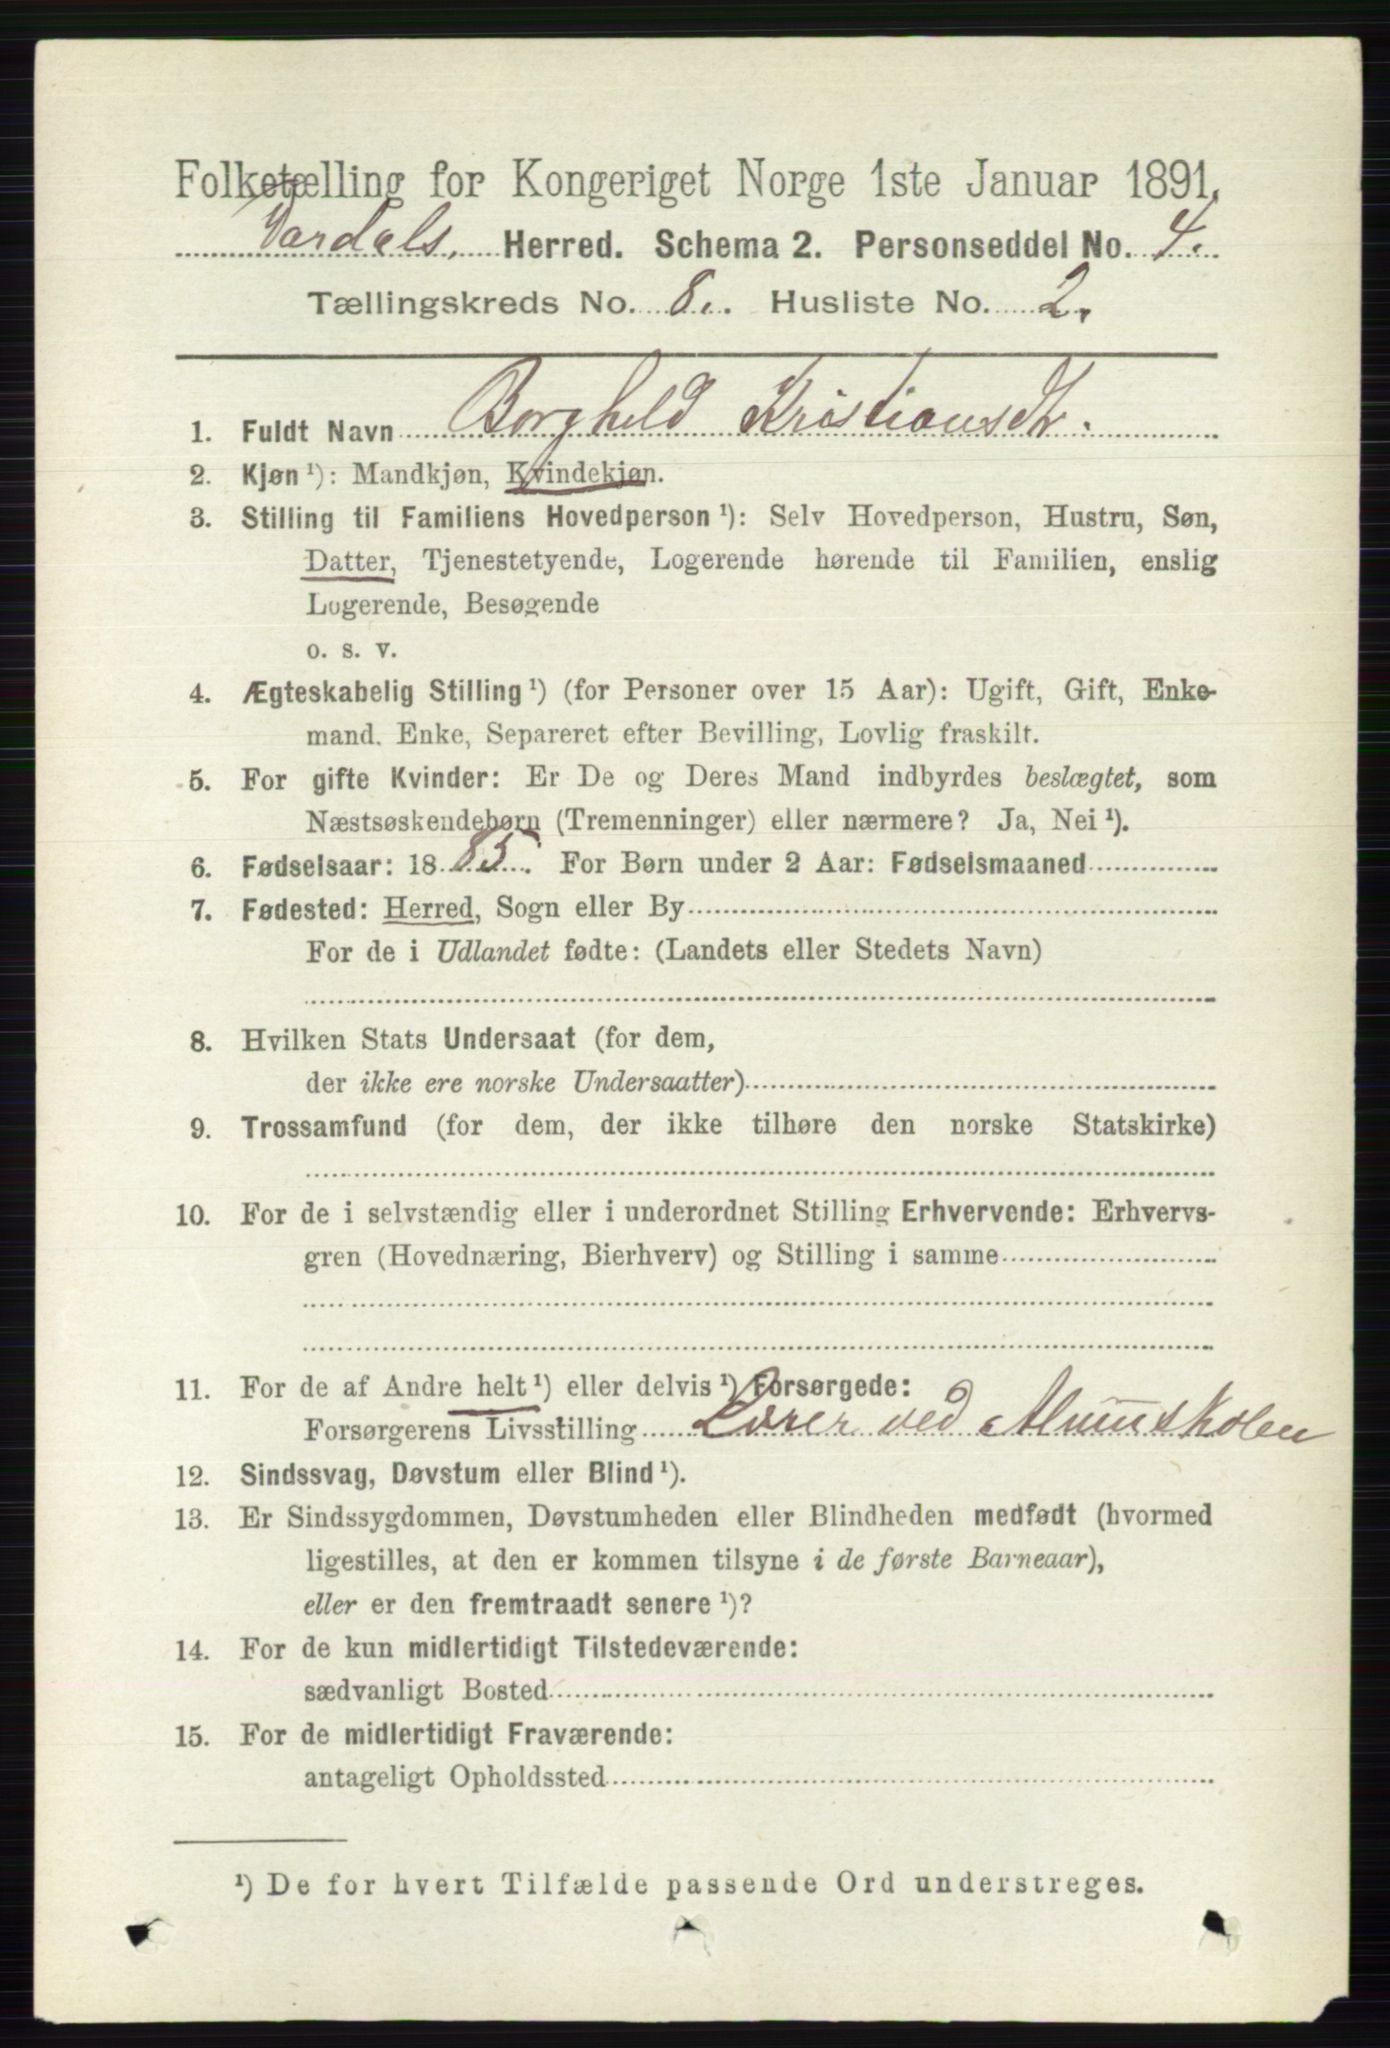 Folketælling for Kongeriget Norge 1ste Januar 1891.
Vardals Herred. Schema 2. Personseddel No. 4.
Tællingskreds No. 8. Husliste No. 2.
1. Fuldt Navn Borghild Kristiansdtr.
2. Kjøn ¹): Mandkjøn, Kvindekjøn.
3. Stilling til Familiens Hovedperson ¹): Selv Hovedperson, Hustru, Søn,
Datter, Tjenestetyende, Logerende hørende til Familien, enslig
Logerende, Besøgende
o. s. v.
4. Ægteskabelig Stilling ¹) (for Personer over 15 Aar): Ugift, Gift, Enke-
mand. Enke, Separeret efter Bevilling, Lovlig fraskilt.
5. For gifte Kvinder: Er De og Deres Mand indbyrdes beslægtet, som
Næstsøskendebørn (Tremenninger) eller nærmere? Ja, Nei ¹).
6. Fødselsaar: 1885. For Børn under 2 Aar: Fødselsmaaned
7. Fødested: Herred, Sogn eller By
For de i Udlandet fødte: (Landets eller Stedets Navn)
8. Hvilken Stats Undersaat (for dem,
der ikke ere norske Undersaatter)
9. Trossamfund (for dem, der ikke tilhøre den norske Statskirke)
10. For de i selvstændig eller i underordnet Stilling Erhvervende: Erhvervs-
gren (Hovednæring, Bierhverv) og Stilling i samme
11. For de af Andre helt ¹) eller delvis ¹) Forsørgede:
Forsørgerens Livsstilling Lærer ved Almuskolen
12. Sindssvag, Døvstum eller Blind ¹).
13. Er Sindssygdommen, Døvstumheden eller Blindheden medfødt (hvormed
ligestilles, at den er kommen tilsyne i de første Barneaar),
eller er den fremtraadt senere ¹)?
14. For de kun midlertidigt Tilstedeværende:
sædvanligt Bosted
15. For de midlertidigt Fraværende:
antageligt Opholdssted
¹) De for hvert Tilfælde passende Ord understreges.